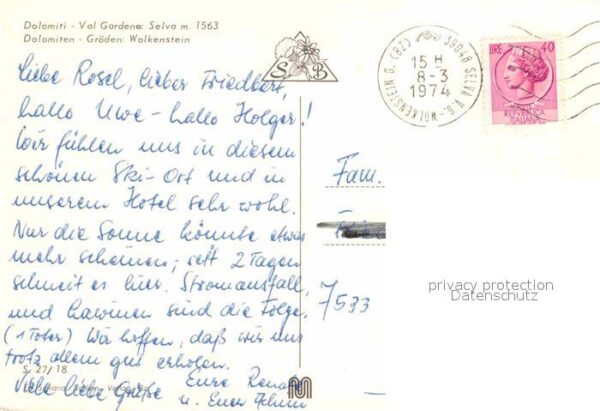 Dolomiti - Val Gardena: Selva m. 1563
Dolomiten - Gröden: Wolkenstein
Liebe Rosel, lieber Friedbert,
hallo Uwe - hallo Holger!
Wir fühlen uns in diesem
schönen Ski-Ort und in
unserem Hotel sehr wohl.
Nur die Sonne könnte etwas
mehr scheinen; seit 2 Tagen
schneit es hier. Stromausfall,
und Lawinen sind die Folge.
(1 Toter) Wir hoffen, daß wir uns
trotz allem gut erholen.
Viele liebe Grüße
Eure Renate
u. Euer
S. 27/18
S B
39048 SELVA V.G. - WOLKENSTEIN G. (BZ)
15 H
8-3
1974
LIRE 40
REPVBBLICA
ITALIANA
Fam.
7533
privacy protection
Datenschutz